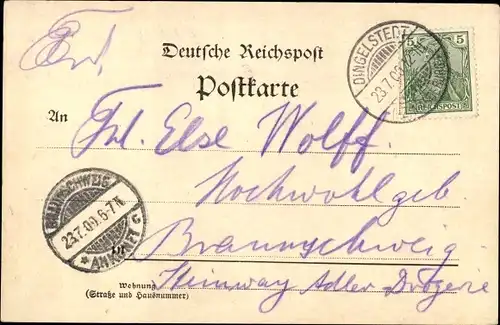 Deutsche Reichspost
Postkarte
An Frl. Else Wolff.
Hochwohlgeb
in Braunschweig
Wohnung Steinway Adler Drogerie
(Straße und Hausnummer)
DINGELSTEDT
23.7.00
5 5
REICHSPOST
BRAUNSCHWEIG
23.7.00.6-7N
* ANKUNFT C